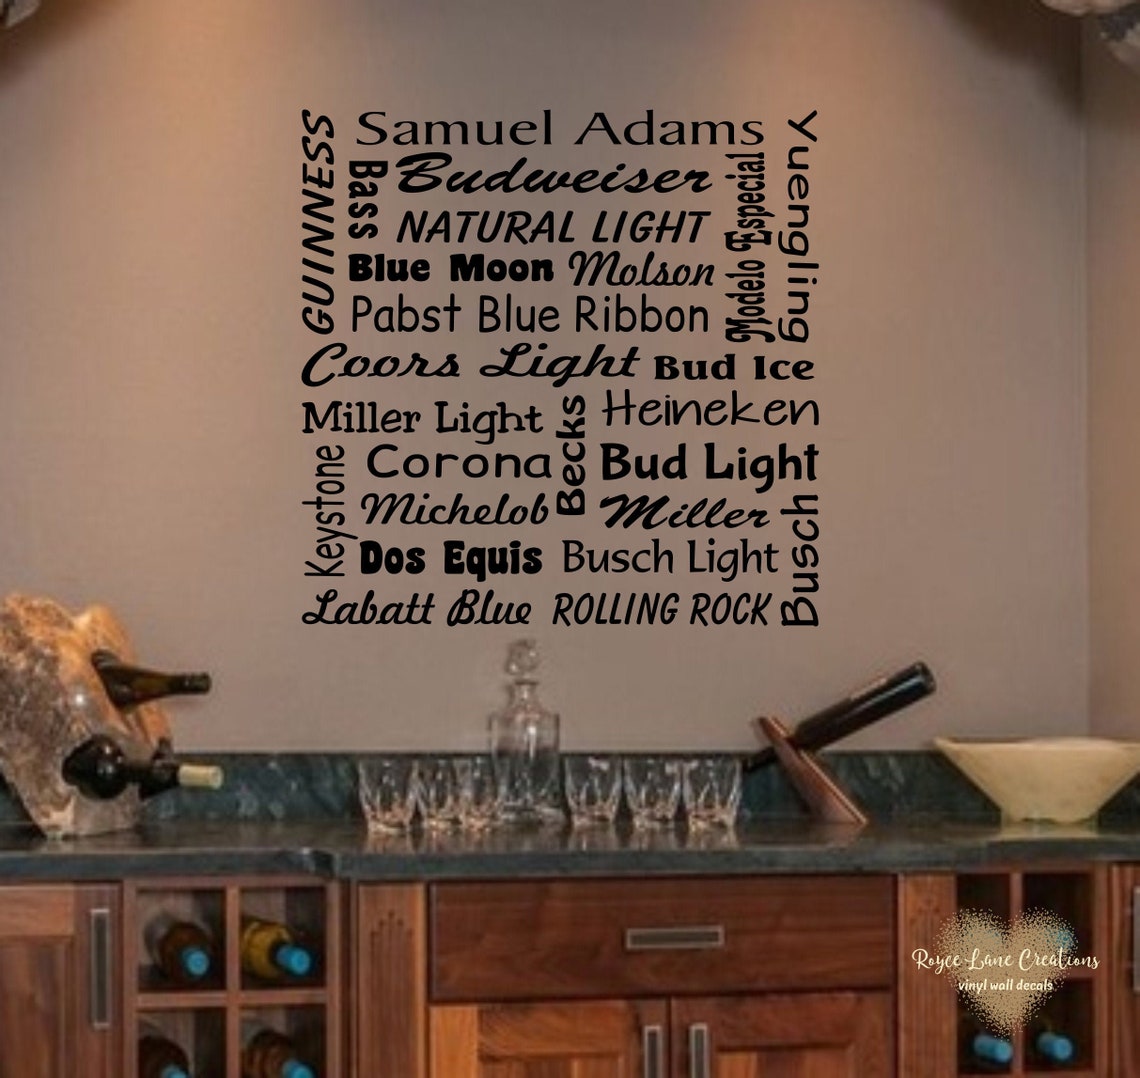 GUINNESS
Samuel Adams
Yuengling
Bass
Budweiser
Modelo Especial
NATURAL LIGHT
Blue Moon
Molson
Pabst Blue Ribbon
Coors Light
Bud Ice
Miller Light
Becks
Heineken
Keystone
Corona
Bud Light
Michelob
Miller
Busch
Dos Equis
Busch Light
Labatt Blue
ROLLING ROCK
Royce Lane Creations
vinyl wall decals